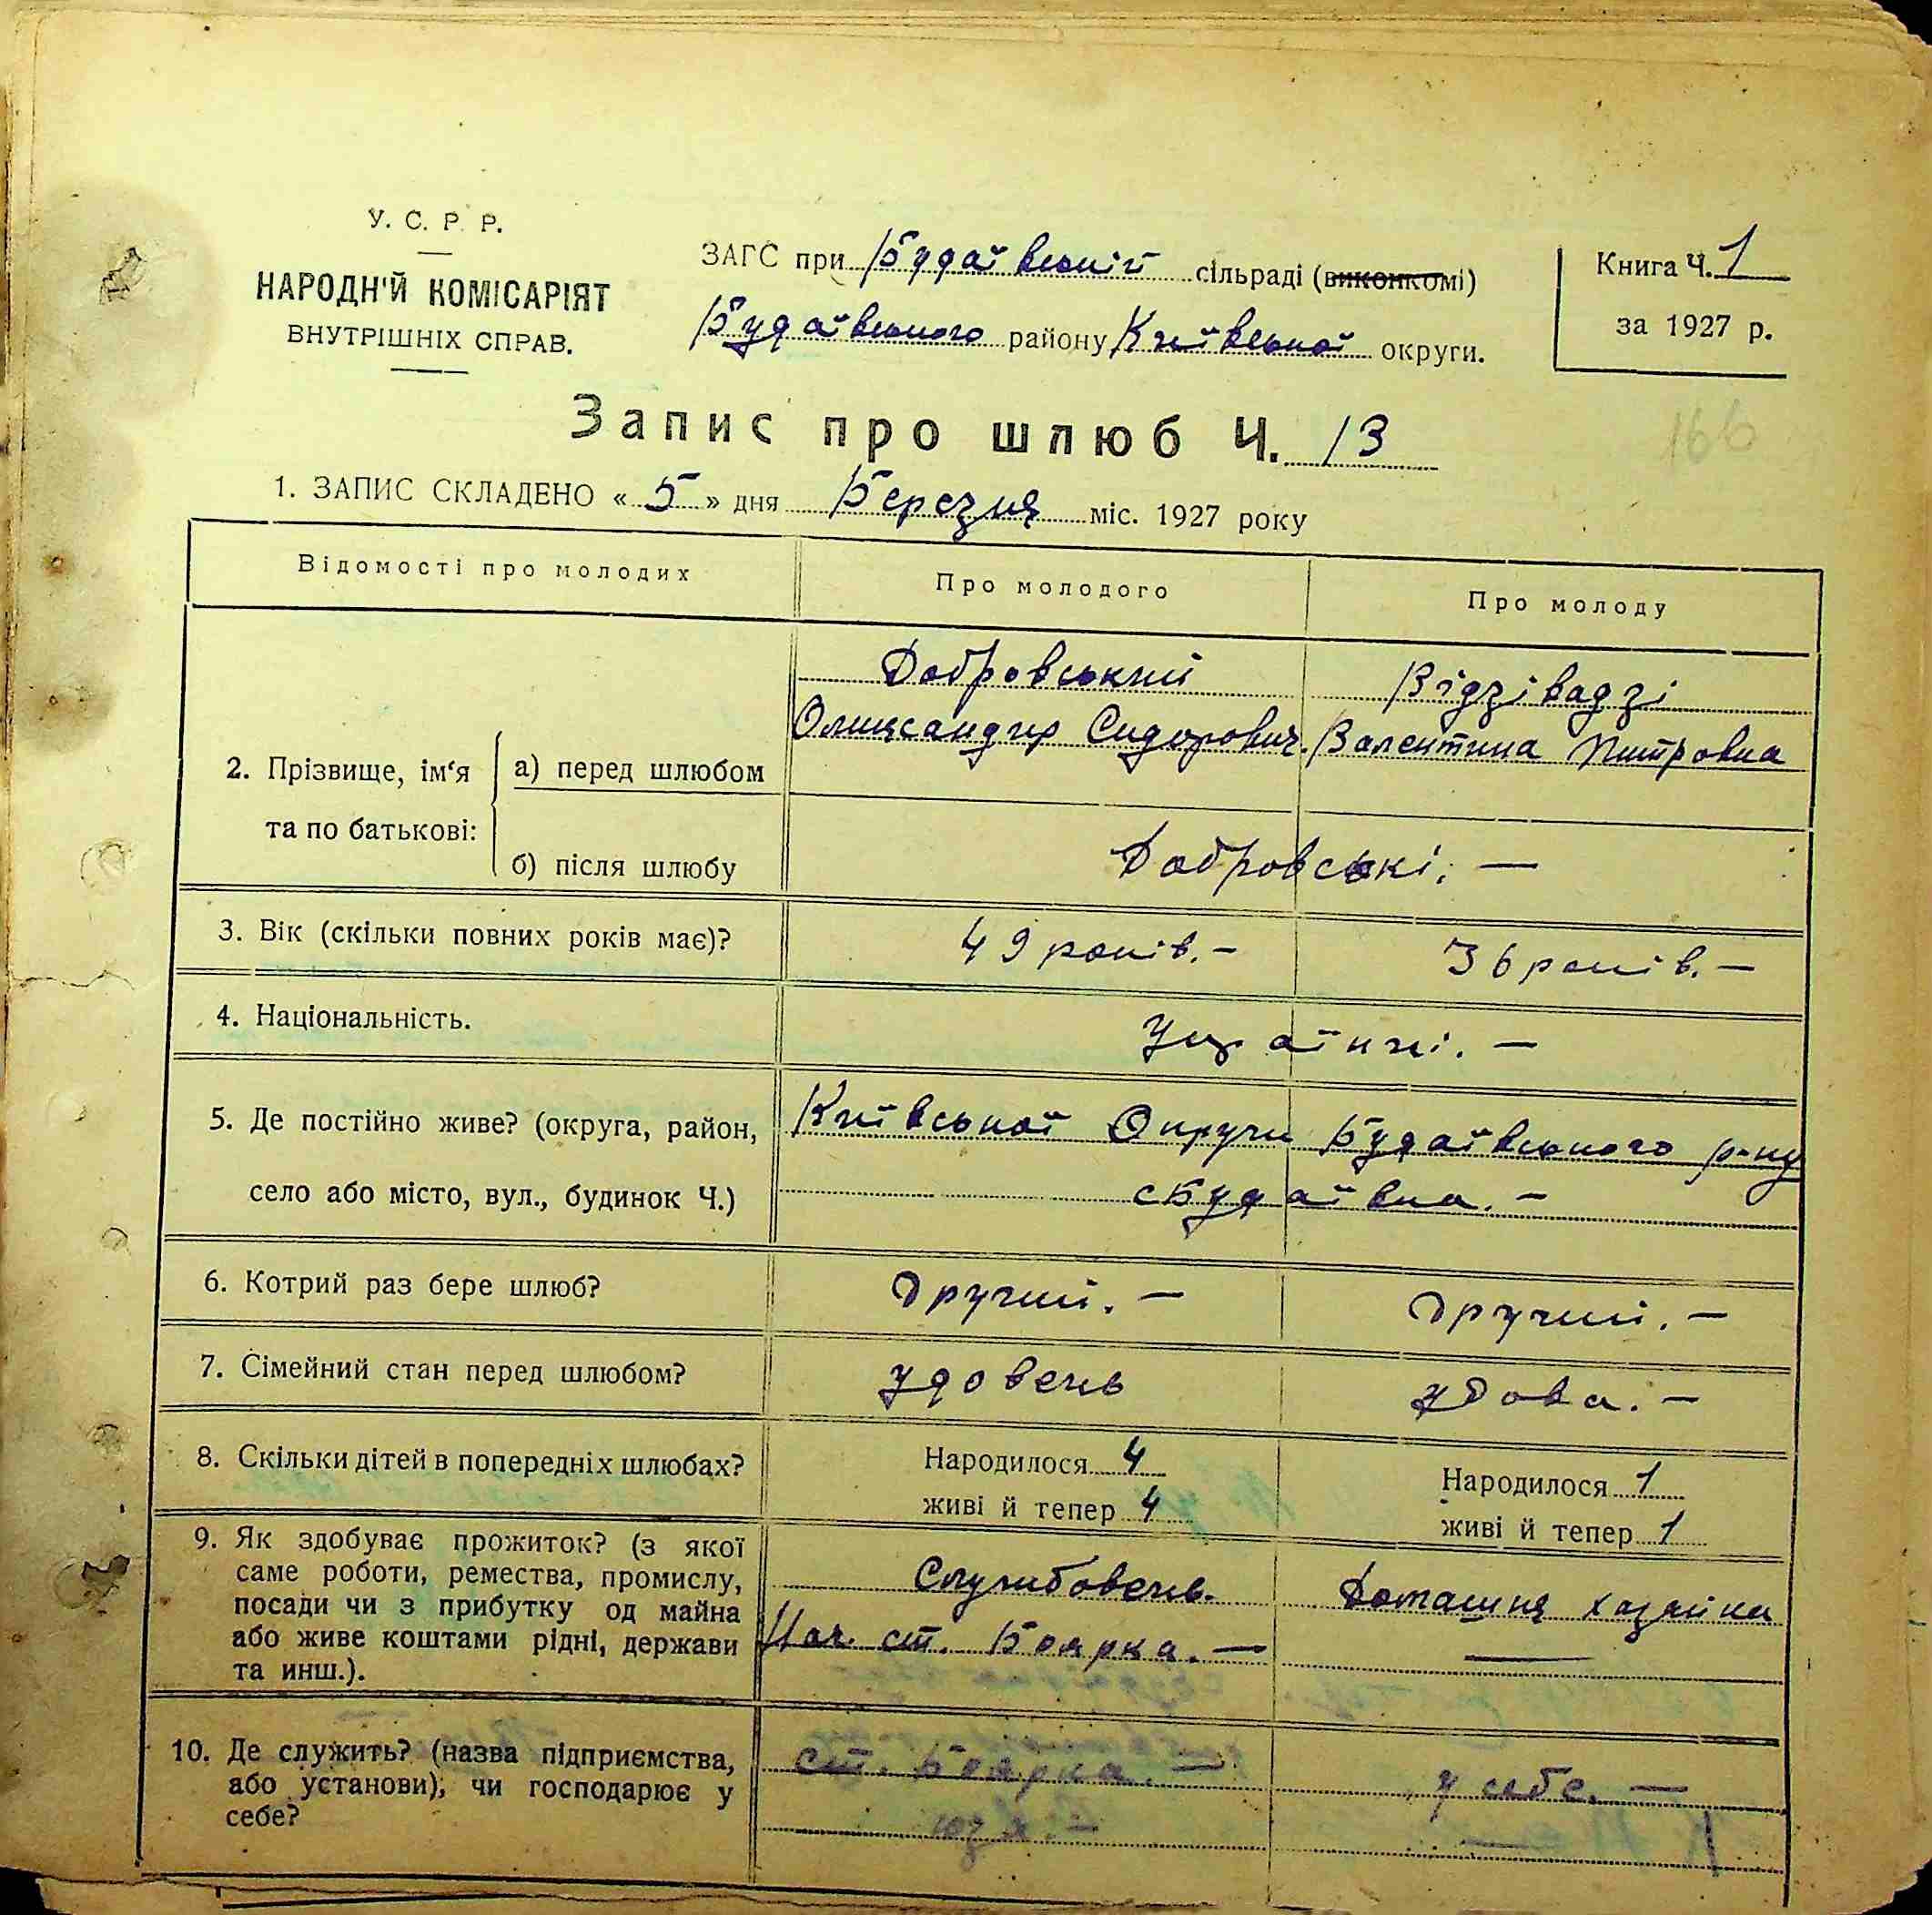 У. С. Р. Р.
НАРОДН'Й КОМІСАРІЯТ
ВНУТРІШНІХ СПРАВ.
ЗАГС при Будаївській сільраді (виконкомі)
Будаївського району Київської округи.
Книга Ч. 1
за 1927 р.
166
Запис про шлюб Ч. 13
1. ЗАПИС СКЛАДЕНО « 5 » дня Березня міс. 1927 року
Відомості про молодих Про молодого Про молоду
2. Прізвище, ім'я та по батькові:
а) перед шлюбом
Добровський
Олександр Сидорович.
Відзівадзі
Валентина Питровна
б) після шлюбу
Добровські. —
3. Вік (скільки повних років має)? 49 років. — 36 років. —
4. Національність. Українці. —
5. Де постійно живе? (округа, район,
село або місто, вул., будинок Ч.)
Київської Округи Будаївського р-ну
с Будаївка. —
6. Котрий раз бере шлюб? Другий. — Другий. —
7. Сімейний стан перед шлюбом? удовець удова. —
8. Скільки дітей в попередніх шлюбах?
Народилося 4
живі й тепер 4
Народилося 1
живі й тепер 1
9. Як здобуває прожиток? (з якої
саме роботи, ремества, промислу,
посади чи з прибутку од майна
або живе коштами рідні, держави
та инш.).
Службовець.
Нач. ст. Боярка. —
Домашня хазяйка
—
10. Де служить? (назва підприємства,
або установи), чи господарює у
себе?
ст. Боярка. —
у себе. —